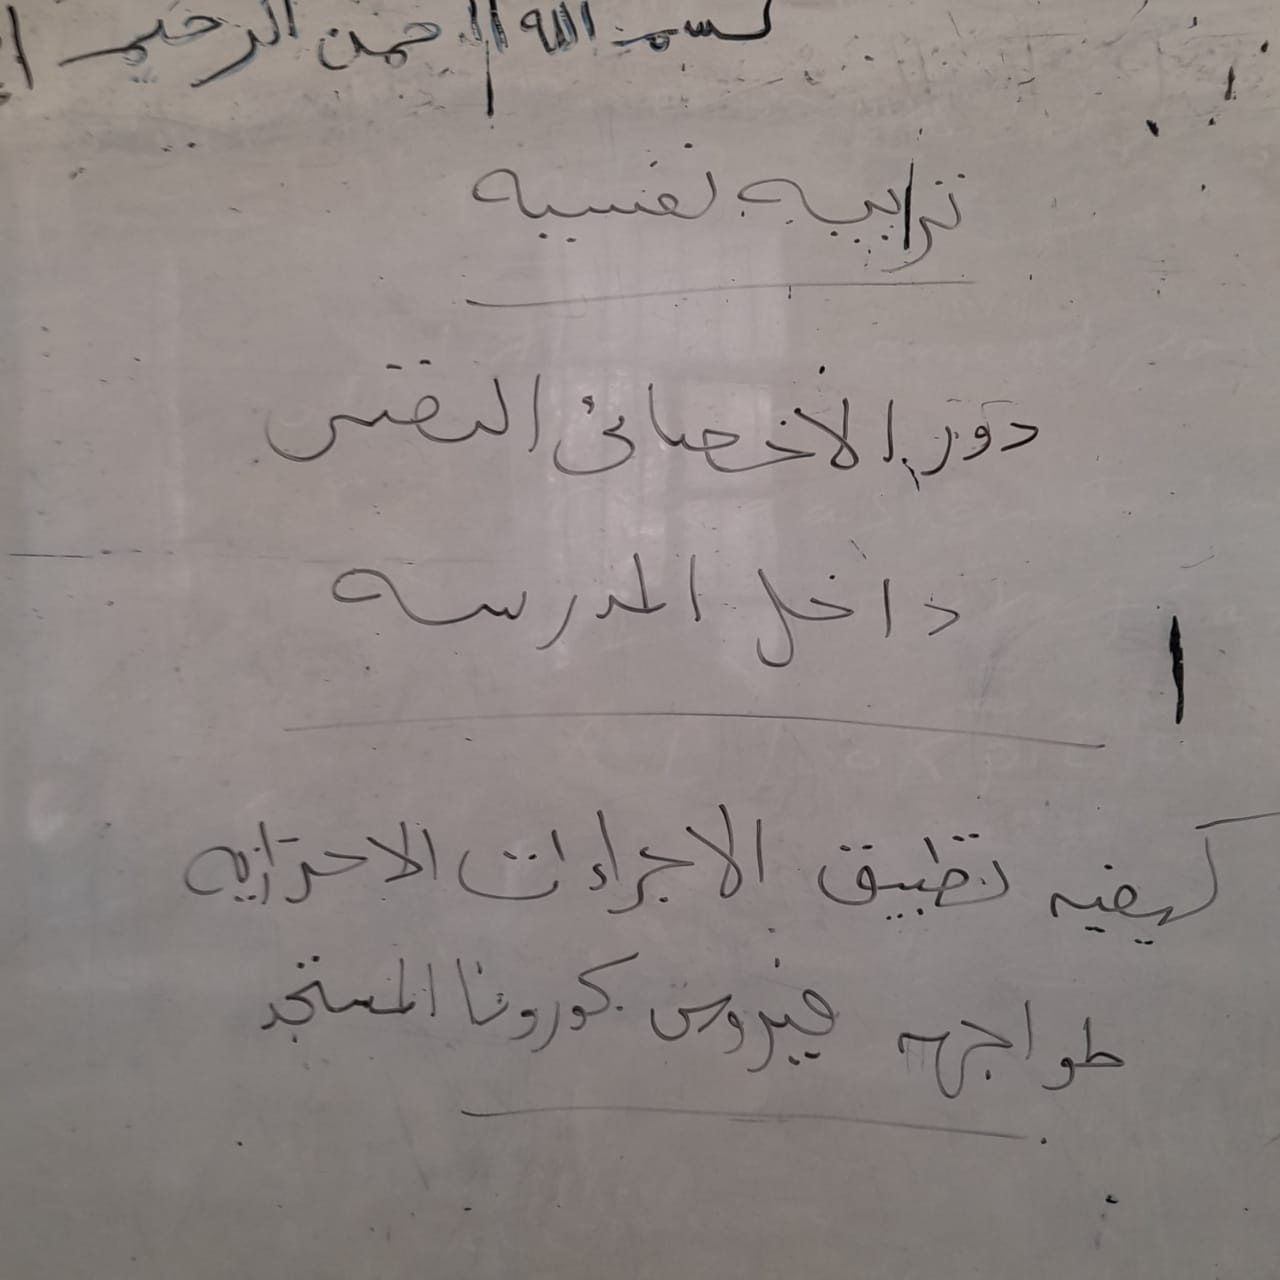 بسم الله الرحمن الرحيم
تربيه نفسيه
دور الاخصائى النفسى
داخل المدرسه
كيفيه تطبيق الاجراءات الاحترازيه
لمواجهه فيروس كورونا المستجد